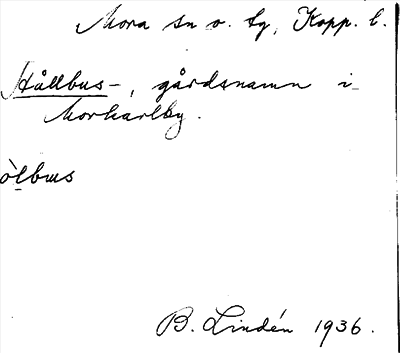 Mora sn o. tg, Kopp. l.
Hållbus-, gårdsnamn i
Morkarlby.
òlbus
B. Lindén 1936.